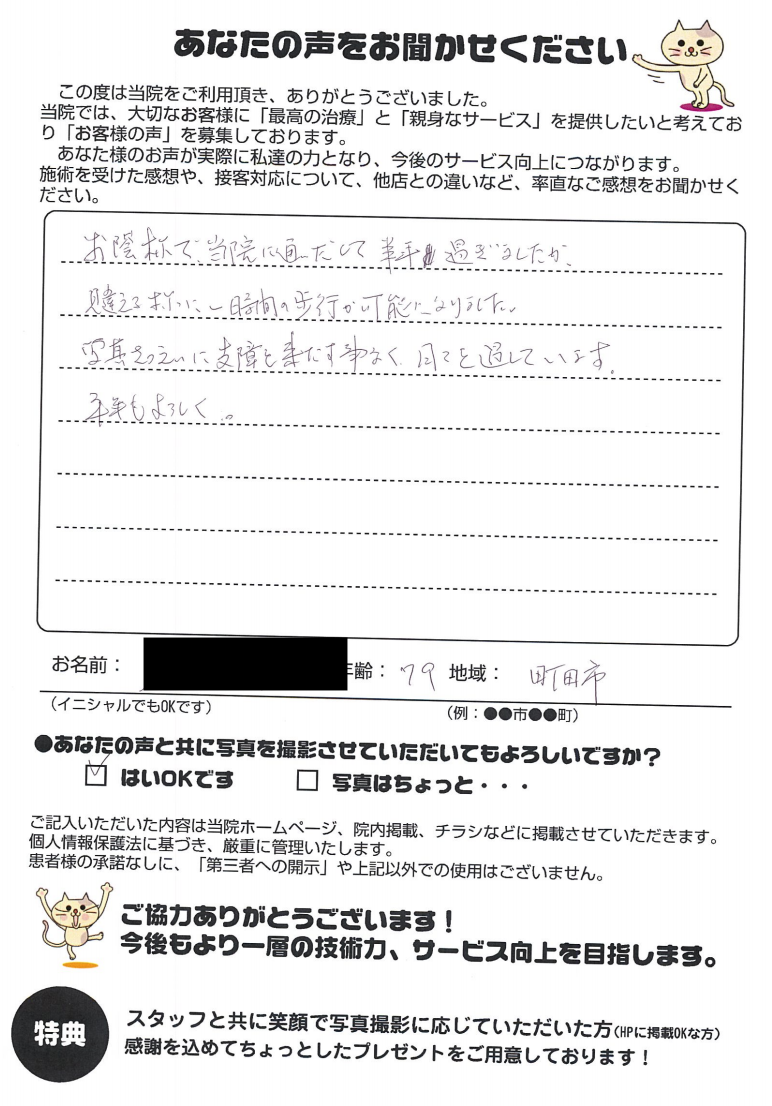 あなたの声をお聞かせください
この度は当院をご利用頂き、ありがとうございました。
当院では、大切なお客様に「最高の治療」と「親身なサービス」を提供したいと考えてお
り「お客様の声」を募集しております。
あなた様のお声が実際に私達の力となり、今後のサービス向上につながります。
施術を受けた感想や、接客対応について、他店との違いなど、率直なご感想をお聞かせく
ださい。
お陰様で、当院に通いだして半年過ぎましたが、
見違える様に、一時間の歩行が可能になりました。
写真きつえいに支障を来たす事なく、日々を過しています。
来年もよろしく。
お名前：
年齢：79 地域：町田市
（イニシャルでもOKです）
（例：●●市●●町）
●あなたの声と共に写真を撮影させていただいてもよろしいですか？
はいOKです
写真はちょっと・・・
ご記入いただいた内容は当院ホームページ、院内掲載、チラシなどに掲載させていただきます。
個人情報保護法に基づき、厳重に管理いたします。
患者様の承諾なしに、「第三者への開示」や上記以外での使用はございません。
ご協力ありがとうございます！
今後もより一層の技術力、サービス向上を目指します。
特典
スタッフと共に笑顔で写真撮影に応じていただいた方(HPに掲載OKな方)
感謝を込めてちょっとしたプレゼントをご用意しております！